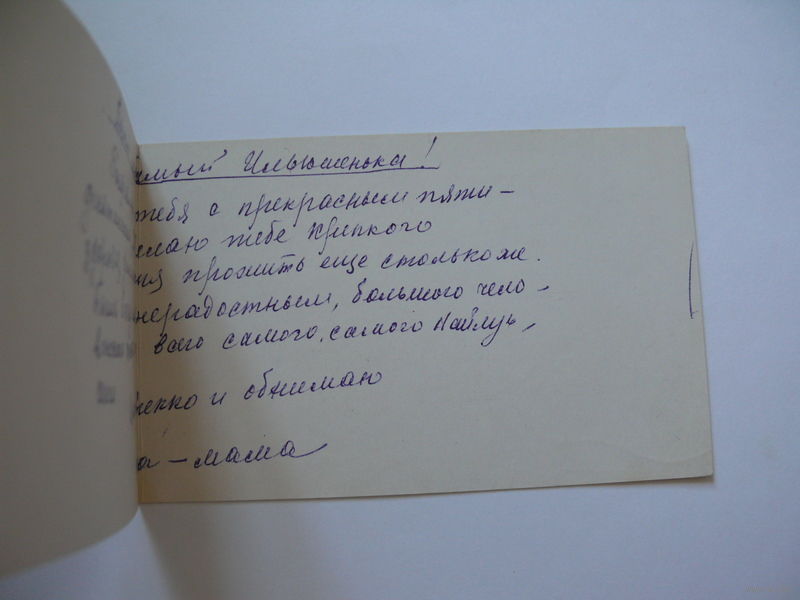 имый Ильюшенька!
тебя с прекрасным пяти-
елаю тебе крепкого
ия прожить еще столькоже.
нерадостным, большого чело-
всего самого, самого наилуч-
и обнимаю
- мама